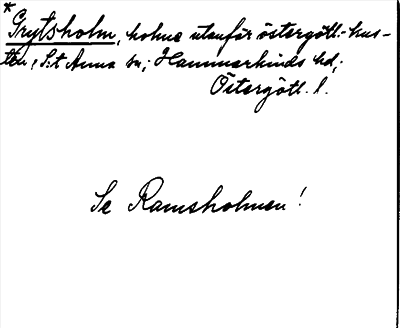 *
Grytsholm, holme utanför östergötl.-kus-
ten, S:t Anna sn; Hammarkinds hd,
Östergötl. l.
Se Ramsholmen!